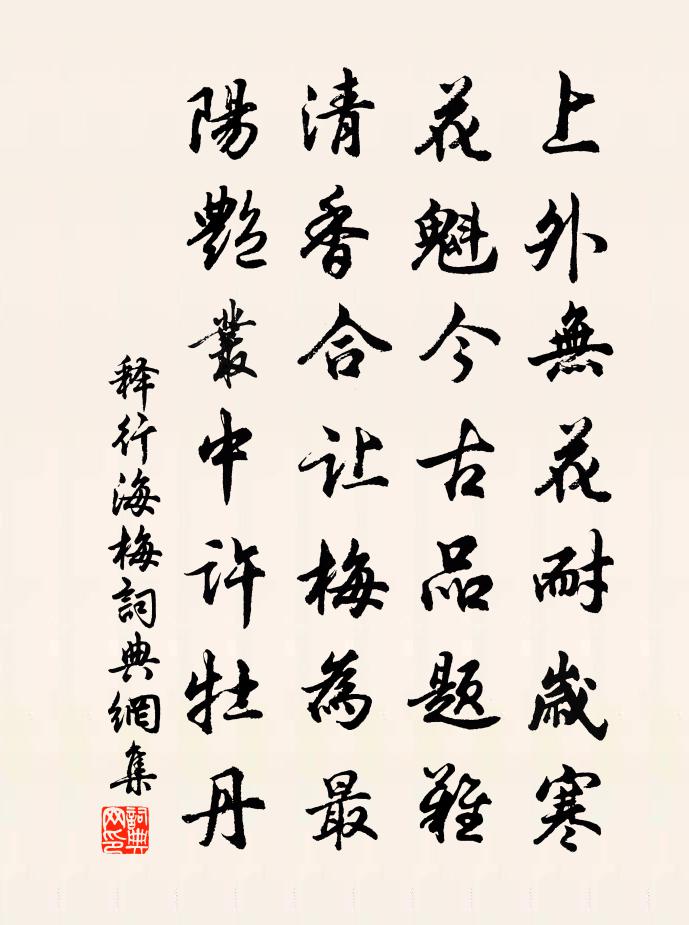 上外無花耐歲寒
花魁今古品題難
清香合让梅為最
陽艷叢中許牡丹
释行海梅詞典網集
詞典网印